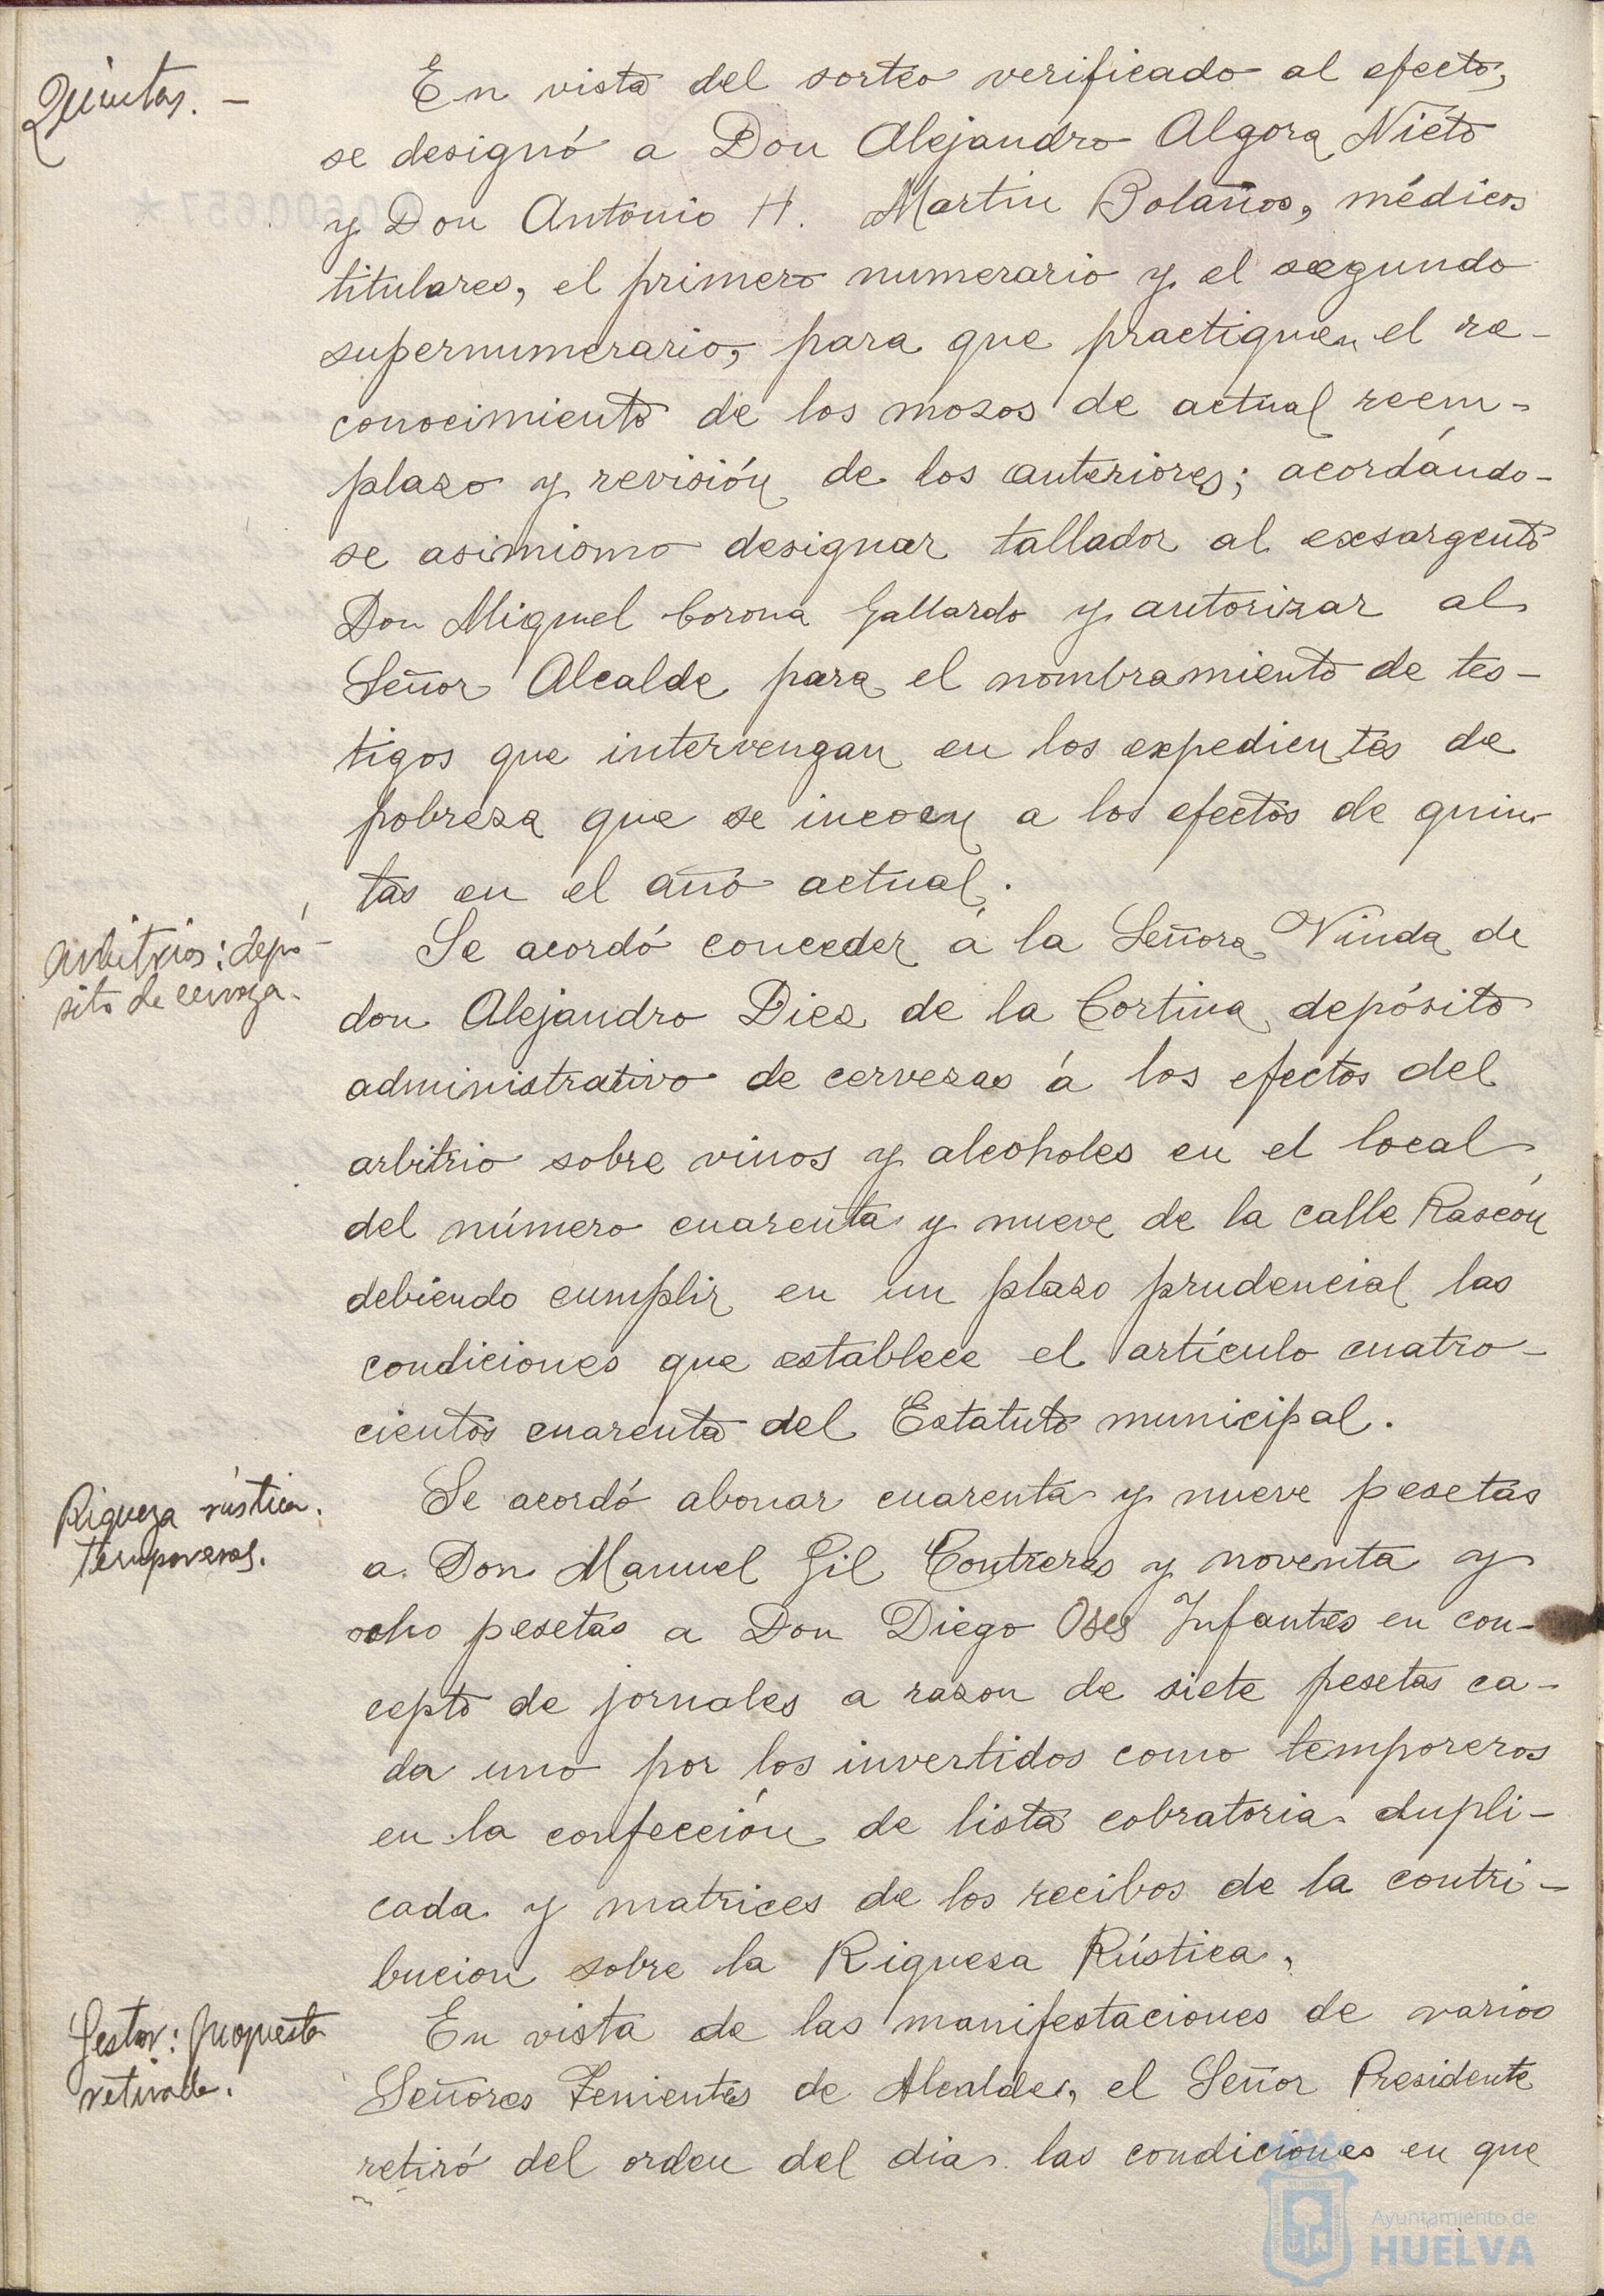 Quintas. -
En vista del sorteo verificado al efecto,
se designó a Don Alejandro Algora Nieto
y Don Antonio H. Martin Bolaños, médicos
titulares, el primero numerario y el segundo
supernumerario, para que practiquen el re-
conocimiento de los mozos de actual reem-
plazo y revisión de los anteriores; acordándo-
se asimismo designar tallador al exsargento
Don Miguel Corona Gallardo y autorizar al
Señor Alcalde para el nombramiento de tes-
tigos que intervengan en los expedientes de
pobreza que se incoen a los efectos de quin-
tas en el año actual.
Arbitrios: depó-
sito de cerveza.
Se acordó conceder á la Señora Viuda de
don Alejandro Diez de la Cortina depósito
administrativo de cervezas á los efectos del
arbitrio sobre vinos y alcoholes en el local
del número cuarenta y nueve de la calle Rascón
debiendo cumplir en un plazo prudencial las
condiciones que establece el artículo cuatro-
cientos cuarenta del Estatuto municipal.
Riqueza rústica.
temporeros.
Se acordó abonar cuarenta y nueve pesetas
a Don Manuel Gil Contreras y noventa y
ocho pesetas a Don Diego Oses Infantes en con-
cepto de jornales a razon de siete pesetas ca-
da uno por los invertidos como temporeros
en la confección de lista cobratoria dupli-
cada y matrices de los recibos de la contri-
bucion sobre la Riqueza Rústica.
Gestor: propuesta
retirada.
En vista de las manifestaciones de varios
Señores Tenientes de Alcalde, el Señor Presidente
retiró del orden del dia las condiciones en que
Ayuntamiento de
HUELVA